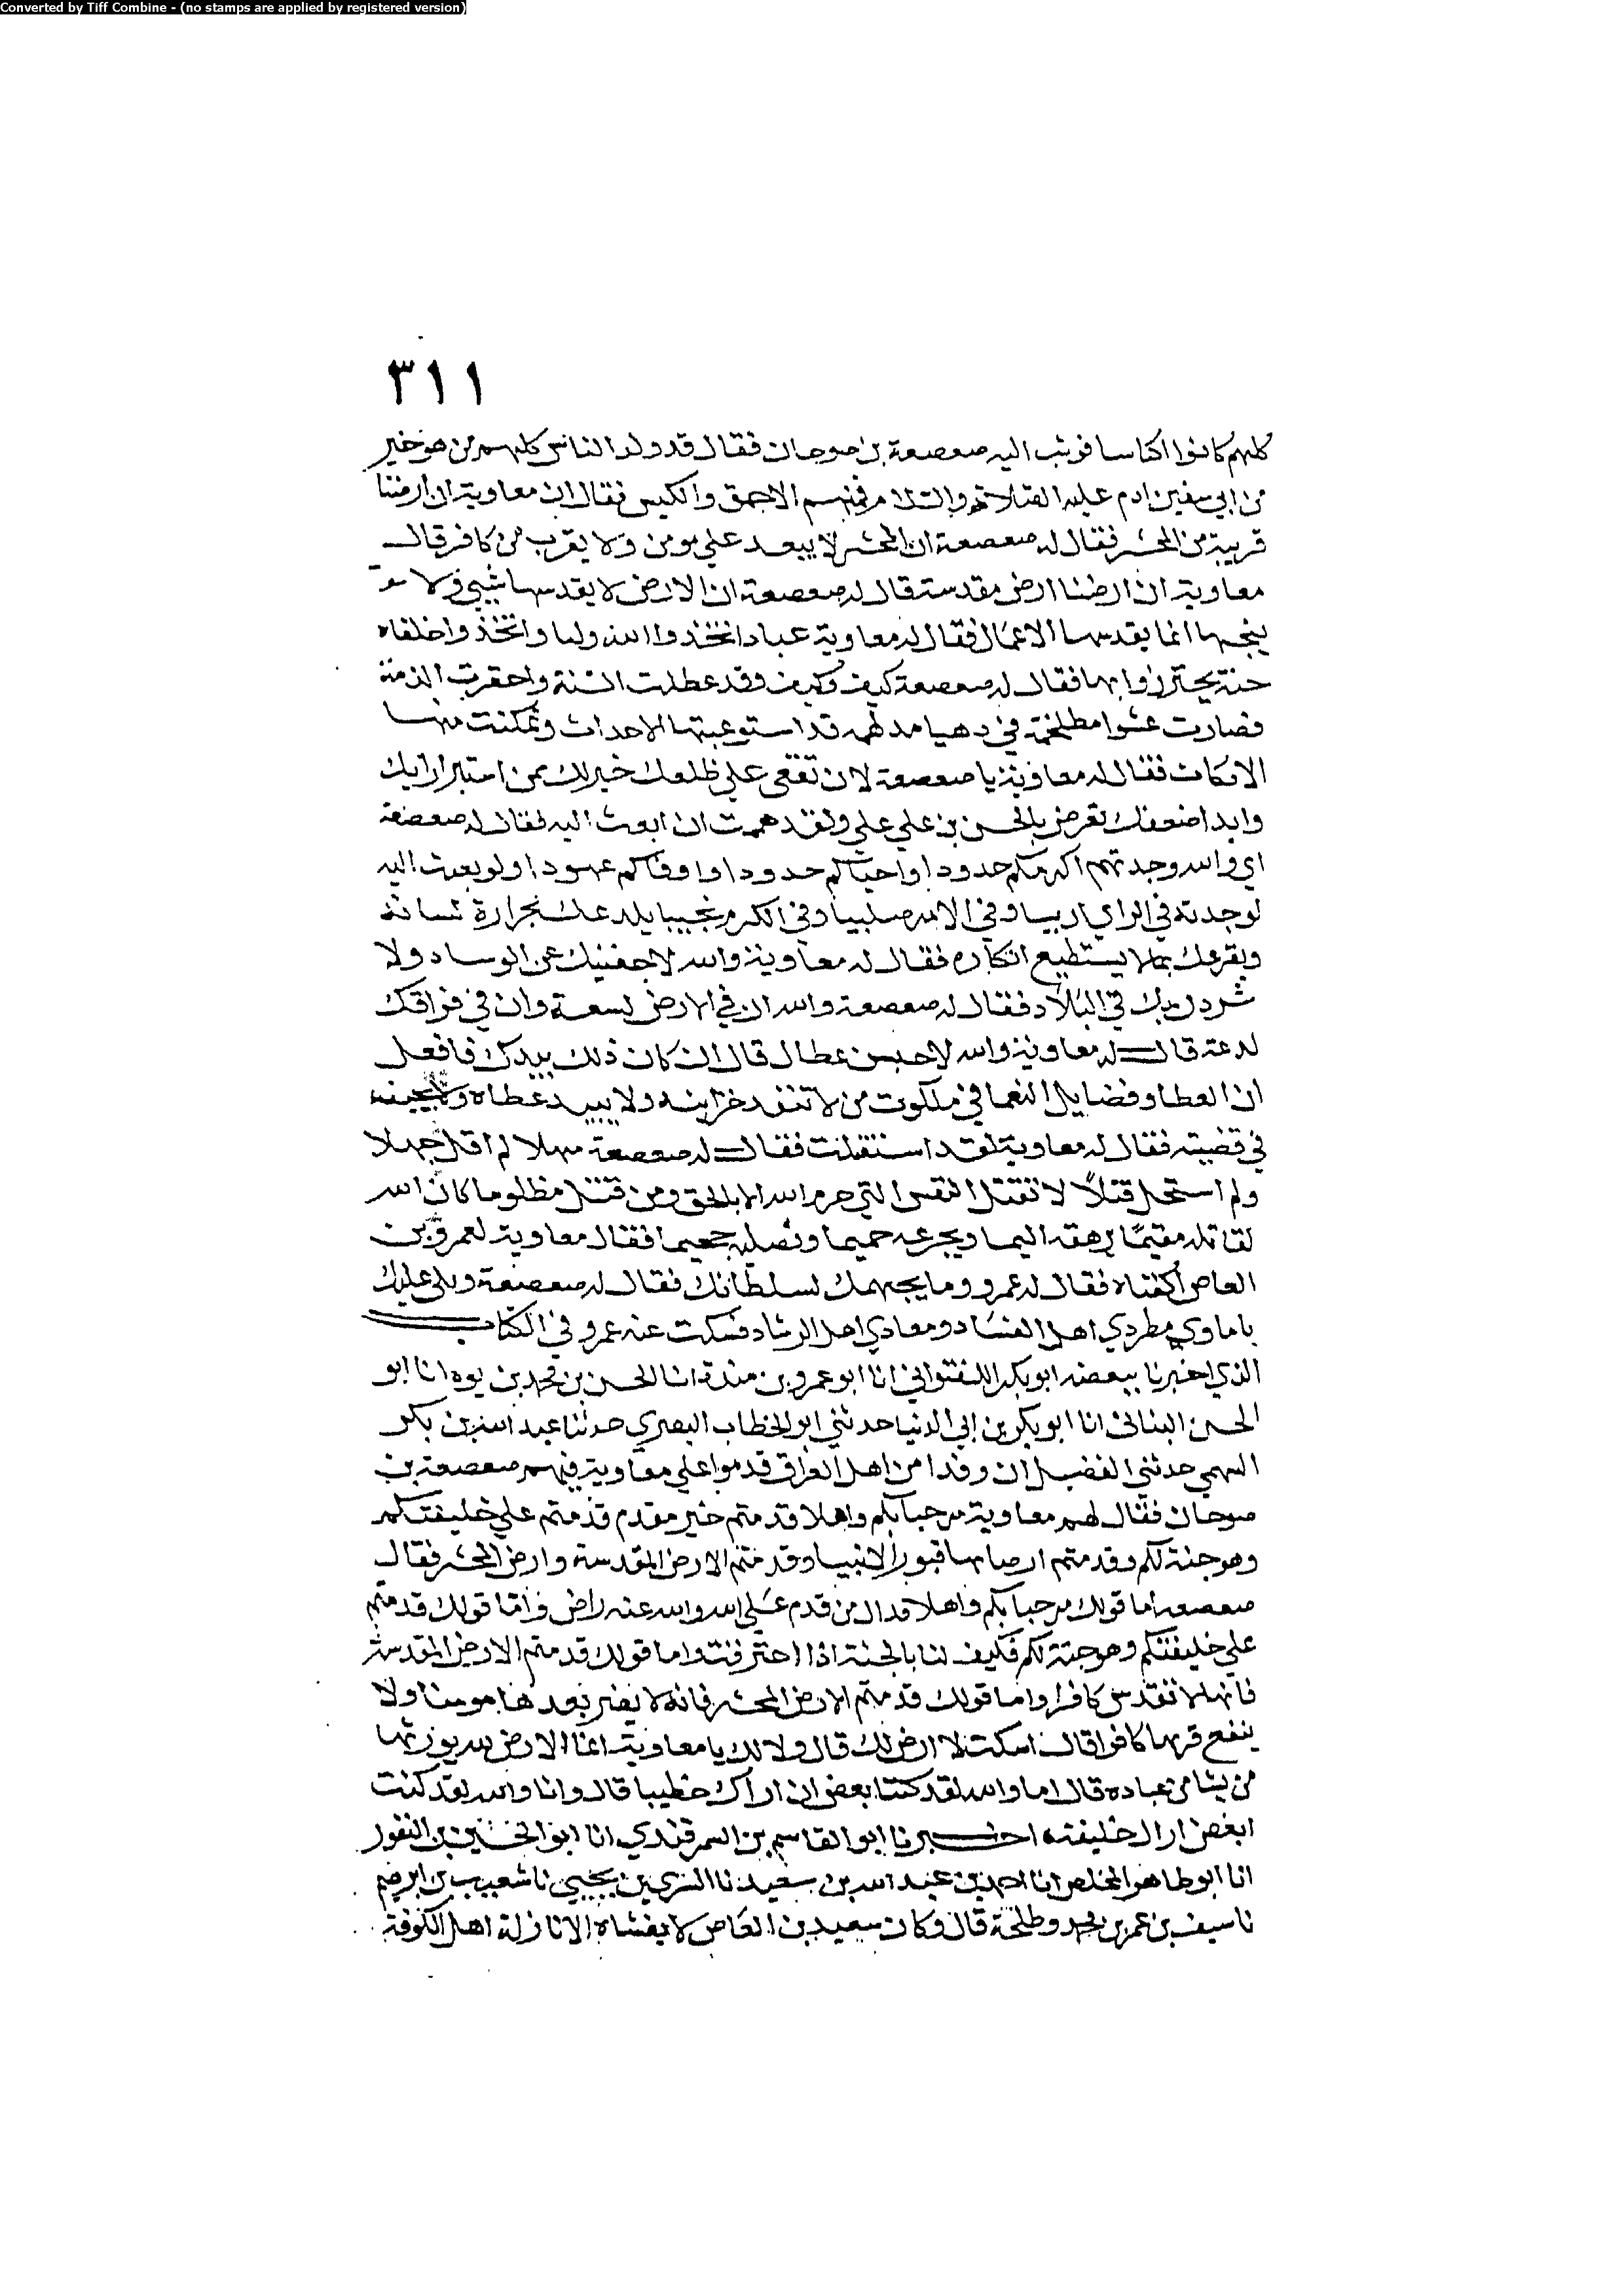 Converted by Tiff Combine - (no stamps are applied by registered version)
٣١١
كلهم كانوا اكياسا فوثب اليه صعصعة بن صوحان فقال قد ولد الناس كلهم من هو خير
من ابي سفين ادم عليه الصلاة والسلام فمنهم الاحمق والكيس فقال ان معاوية ان ارضنا
قريبة من المحشر فقال له صعصعة ان المحشر لا يبعد علي مومن ولا يقرب من كافر قال
معاوية ان ارضنا ارض مقدسة قال له صعصعة ان الارض لا يقدسها شيي ولا
ينجسها انما يقدسها الاعمال فقال له معاوية عباد اتخذوا الله وليا واتخذوا خلفاه
جنة يحترزوا بها فقال له صعصعة كيف وكيف وقد عطلت السنة واحقرت الذمة
فصارت عشوا مطلخمة في دهيا مدلهمة قد استوعبتها الاحداث وتمكنت منها
الانكاث فقال له معاوية يا صعصعة لان تقعى علي ظلعك خير لك من استبرا رايك
وابدا ضعفك تعرض بالحسن بن علي علي ولقد هممت ان ابعث اليه فقال له صعصعة
اي والله وجدتهم اكرمكم جدودا واحياكم حدودا واوفاكم عهودا ولو بعثت اليه
لوجدته في الراي اريبا وفي الامر صليبا وفي الكرم نجيبا يلدعك بحرارة لسانه
ويقرعك بما لا يستطيع انكاره فقال له معاوية والله لاجفينك عن الوساد ولا
شردن بك في البلاد فقال له صعصعة والله ان في الارض لسعة وان في فراقك
لدعة قال له معاوية والله لاحبسن عطاك قال ان كان ذلك بيدك فافعل
ان العطا وفضايل النعما في ملكوت من لا تنفد خزاينه ولا يبيد عطاه ولا يحيف
في قضيته فقال له معاوية لقد استقتلت فقال له صعصعة مهلا لم اقل جهلا
ولم استحل قتلاً لا تقتل النفس التي حرم الله الا بالحق ومن قتل مظلوما كان الله
لقاتله مقيتا يرهقه اليما ويجرعه حميما ويصليه جحيما فقال معاوية لعمرو بن
العاص اكفناه فقال له عمرو وما يجهمك لسلطانك فقال له صعصعة ويلي عليك
يا ماوي مطردي اهل الفساد ومعادي اهل الرشاد فسكت عنه عمرو في الكتاب
الذي اخبرنا ببعضه ابو بكر اللفتواني انا ابو عمرو بن مندة انا الحسن بن محمد بن يوه انا ابو
الحسن البناني انا ابو بكر بن ابي الدنيا حدثني ابو الخطاب البصري حدثنا عبد الله بن بكر
السهمي حدثني الفضيل ان وفدا من اهل العراق قدموا علي معاوية فيهم صعصعة بن
صوحان فقال لهم معاوية مرحبا بكم واهلا قدمتم خير مقدم قدمتم علي خليفتكم
وهو جنة لكم وقدمتم ارضا بها قبور الانبيا وقدمتم الارض المقدسة وارض المحشر فقال
صعصعة اما قولك مرحبا بكم واهلا فداك من قدم علي الله والله عنه راض واما قولك قدمتم
علي خليفتكم وهو جنة لكم فكيف لنا بالجنة اذا احترقت واما قولك قدمتم الارض المقدسة
فانها لا تقدس كافرا واما قولك قدمتم الارض المحشر فانه لا يضر بعدها مومنا ولا
ينفع قربها كافرا قال اسكت لا ارض لك قال ولا لك يا معاوية انما الارض لله يورثها
من يشا من عباده قال اما والله لقد كنت ابغض ان اراك خطيبا قال وانا والله لقد كنت
ابغض اراك خليفة اخبرنا ابو القاسم بن السمرقندي انا ابو الحسين بن النقور
انا ابو طاهر المخلص انا احمد بن عبد الله بن سعيد نا السري بن يحيي نا شعيب بن ابرهيم
نا سيف بن عمر بن محمد وطلحة قال وكان سعيد بن العاص لا يغشاه الا نازلة اهل الكوفة